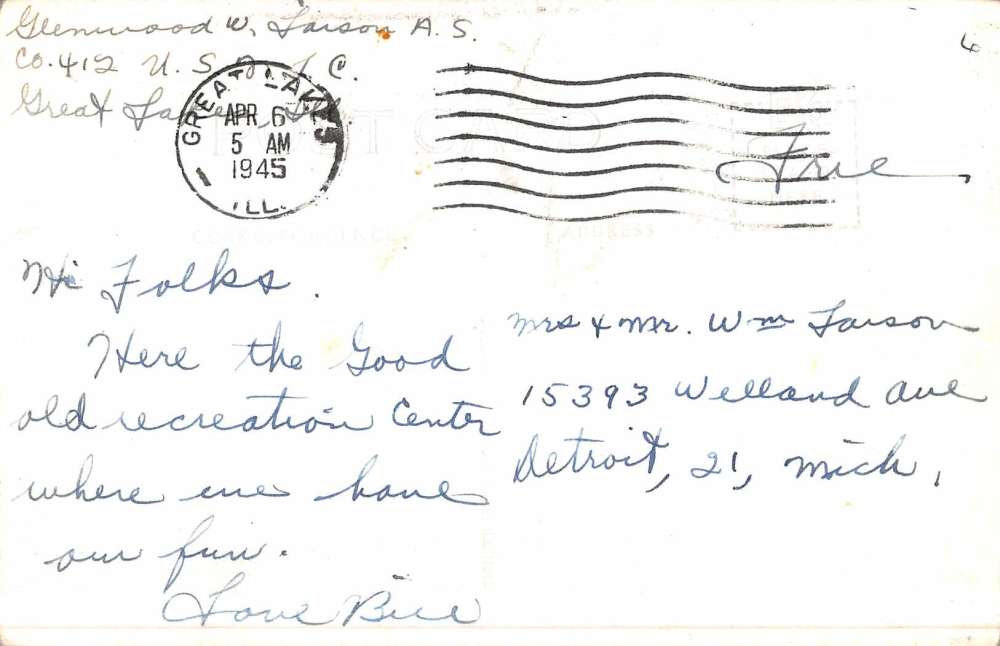 Glenwood W. Larson A. S.
Co. 412 U. S. N. T. C.
Great Lakes, Ill.
GREAT LAKES
APR 6
5 AM
1945
ILL.
POST CARD
Free
6
CORRESPONDENCE
ADDRESS
Hi Folks.
Here the Good
old recreation Center
where we have
our fun.
Love Bill
Mrs & Mr. Wm Larson
15393 Welland Ave
Detroit, 21, Mich,